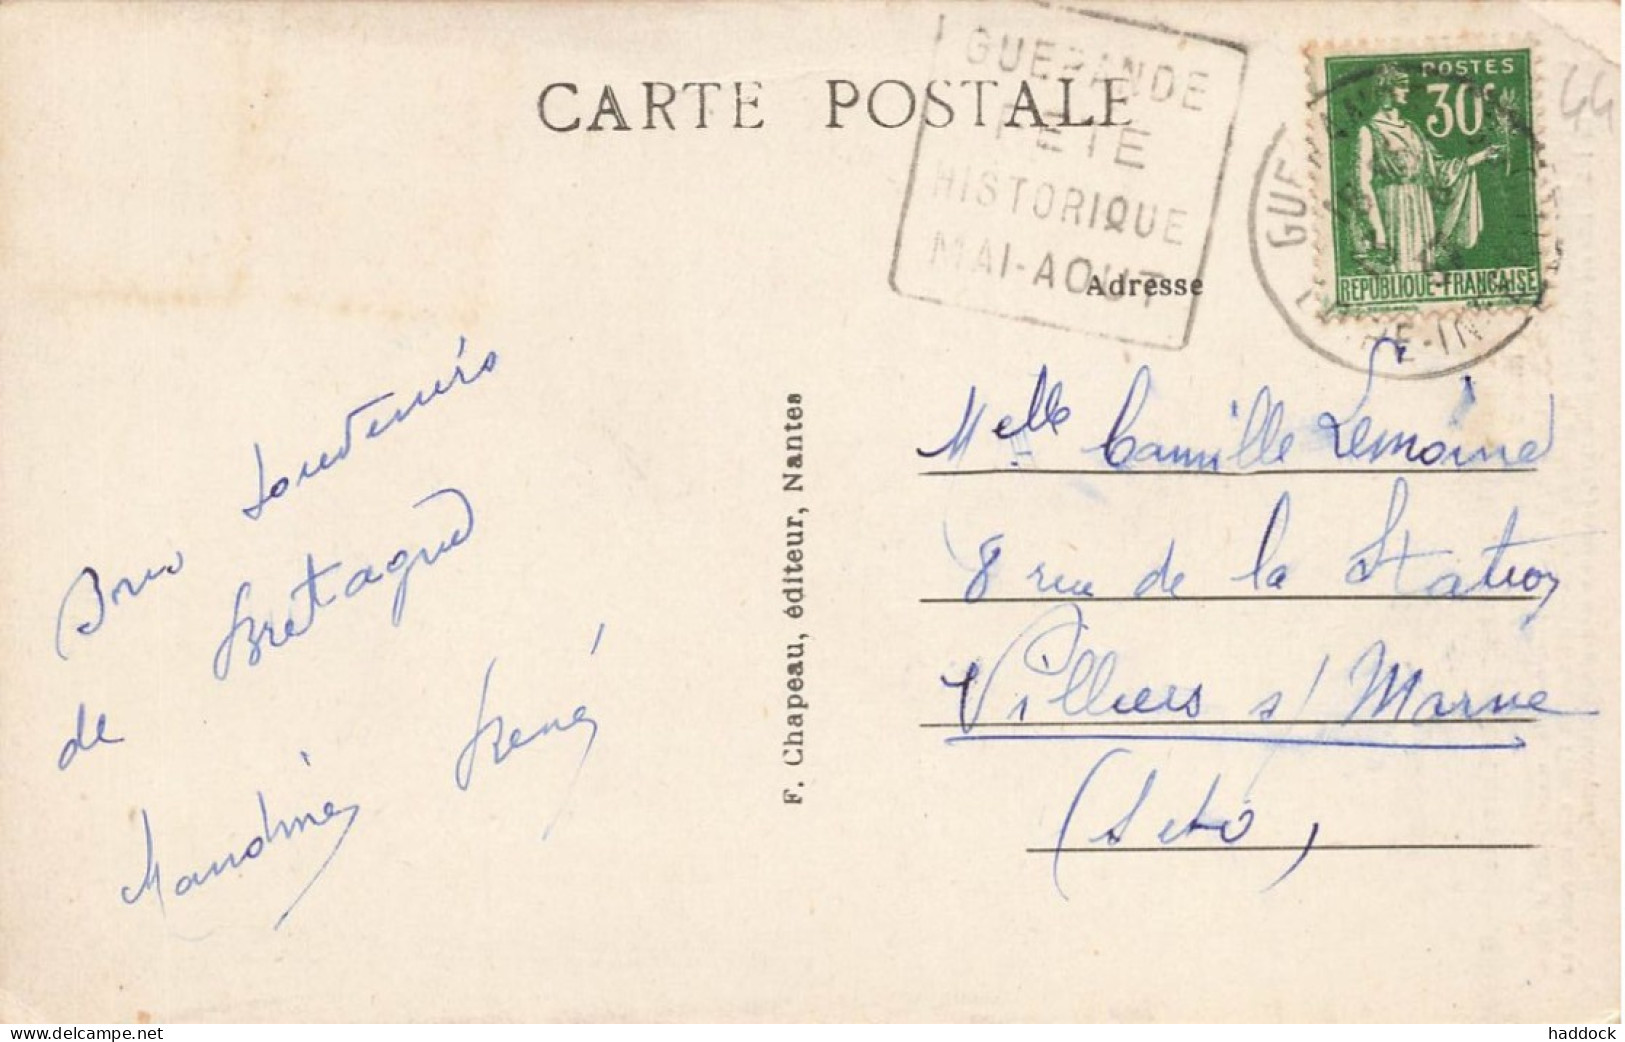 CARTE POSTALE
GUERANDE
FETE
HISTORIQUE
MAI-AOUT
POSTES
30c
REPUBLIQUE-FRANÇAISE
44
Adresse
F. Chapeau, éditeur, Nantes
Bons Souvenirs
de Bretagne
René
Melle Camille Lemoine
8 rue de la Station
Villiers s/ Marne
(S et O)
delcampe.net
haddock